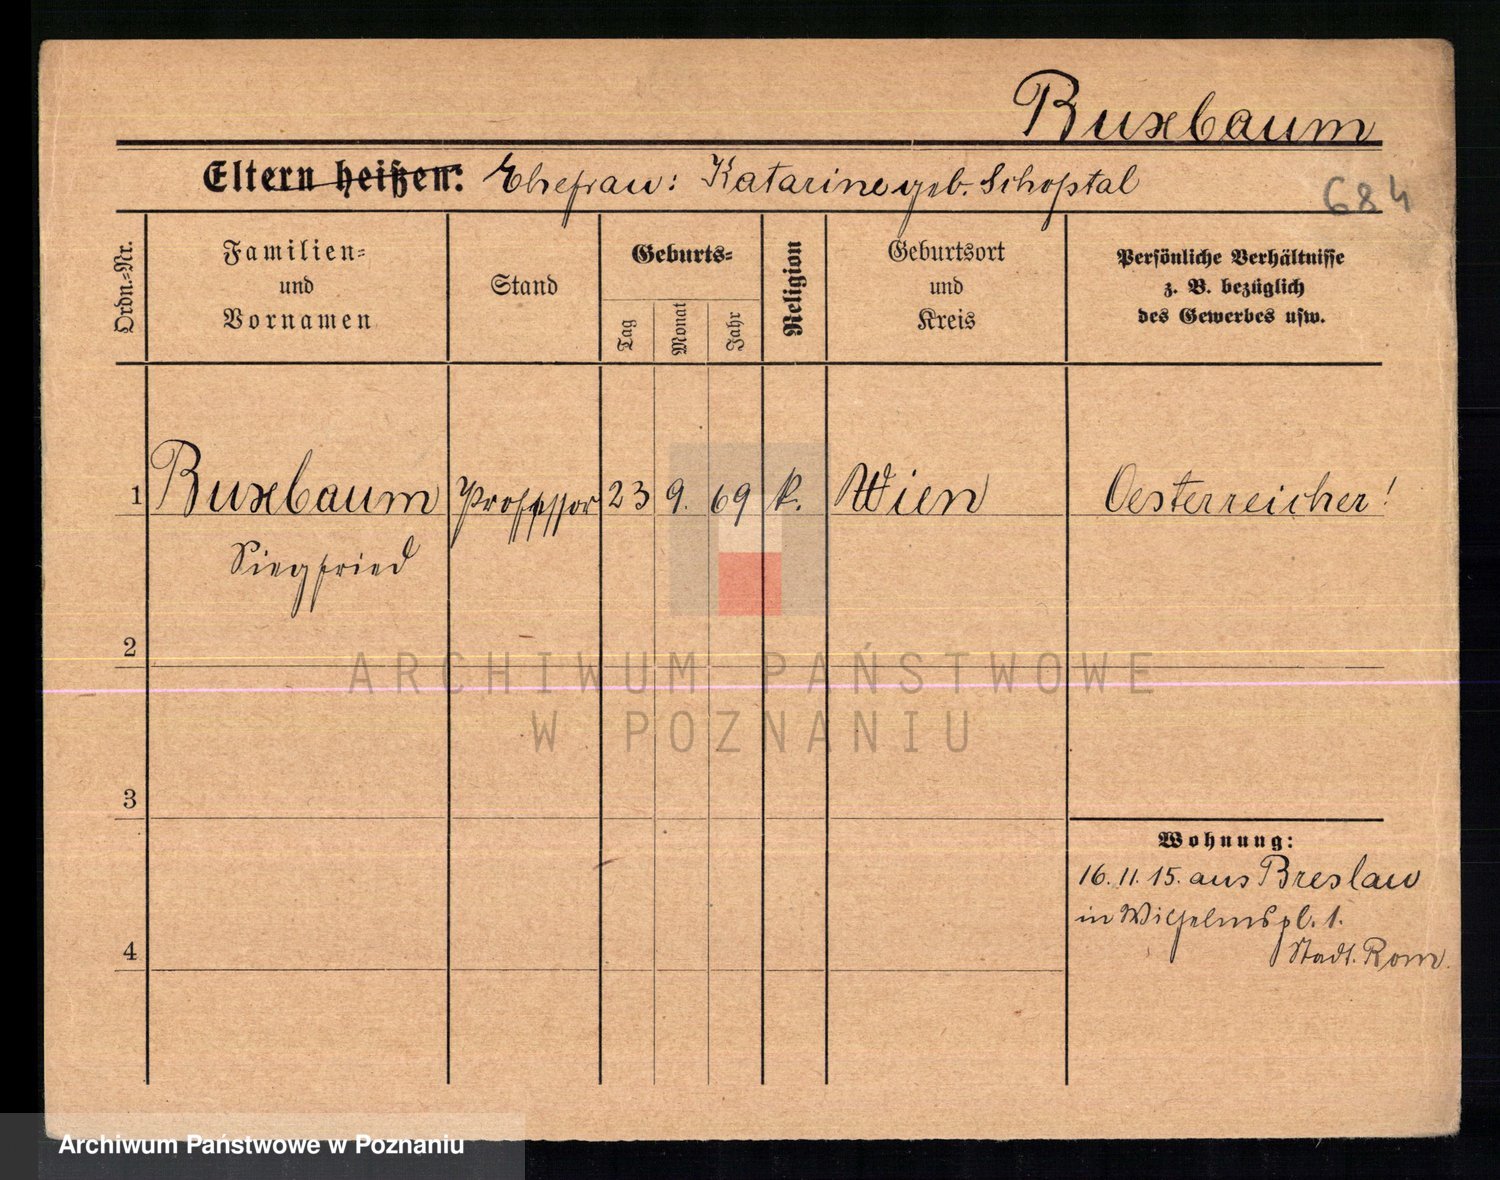 Buxbaum
Eltern heißen: Ehefrau: Katarine geb. Schoptal
684
Ordn.-Nr.
Familien-
und
Vornamen
Stand
Geburts-
Tag
Monat
Jahr
Religion
Geburtsort
und
Kreis
Persönliche Verhältnisse
z. B. bezüglich
des Gewerbes usw.
1 Buxbaum Professor 23 9. 69 k. Wien Oesterreicher!
Siegfried
2
ARCHIWUM PAŃSTWOWE
W POZNANIU
3
Wohnung:
16. 11. 15. aus Breslau
in Wilhelmspl. 1.
4
Stadt. Rom.
Archiwum Państwowe w Poznaniu